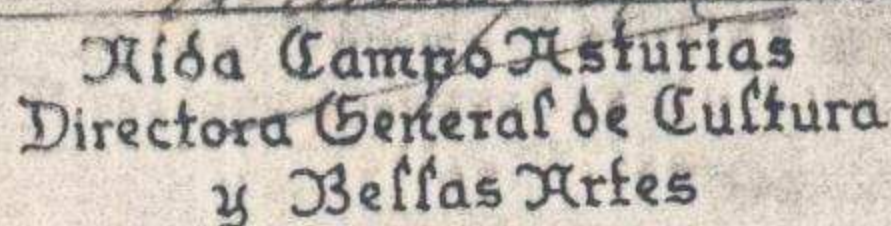 Aída Campo Asturias
Directora General de Cultura
y Bellas Artes